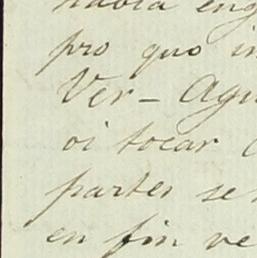 habia eng
pro quo in
Ver- Agu
oi tocar
partes se
en fin ve